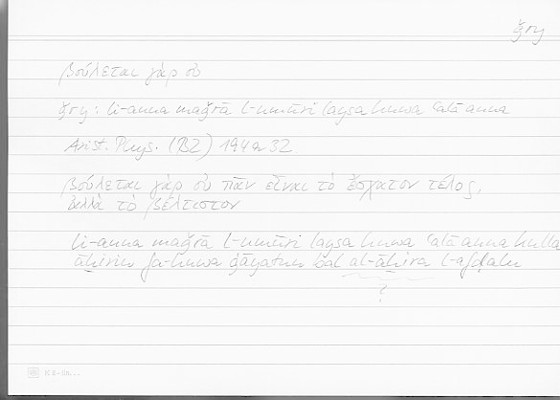 ǧry
βούλεται γὰρ οὐ
ǧry: li-anna maǧrā l-umūri laysa huwa ʿalā anna
Arist. Phys. (B2) 194a32
βούλεται γὰρ οὐ πᾶν εἶναι τὸ ἔσχατον τέλος,
ἀλλὰ τὸ βέλτιστον
li-anna maǧrā l-umūri laysa huwa ʿalā anna kulla
āḫirin fa-huwa ġāyatun bal al-āḫira l-afḍalu
?